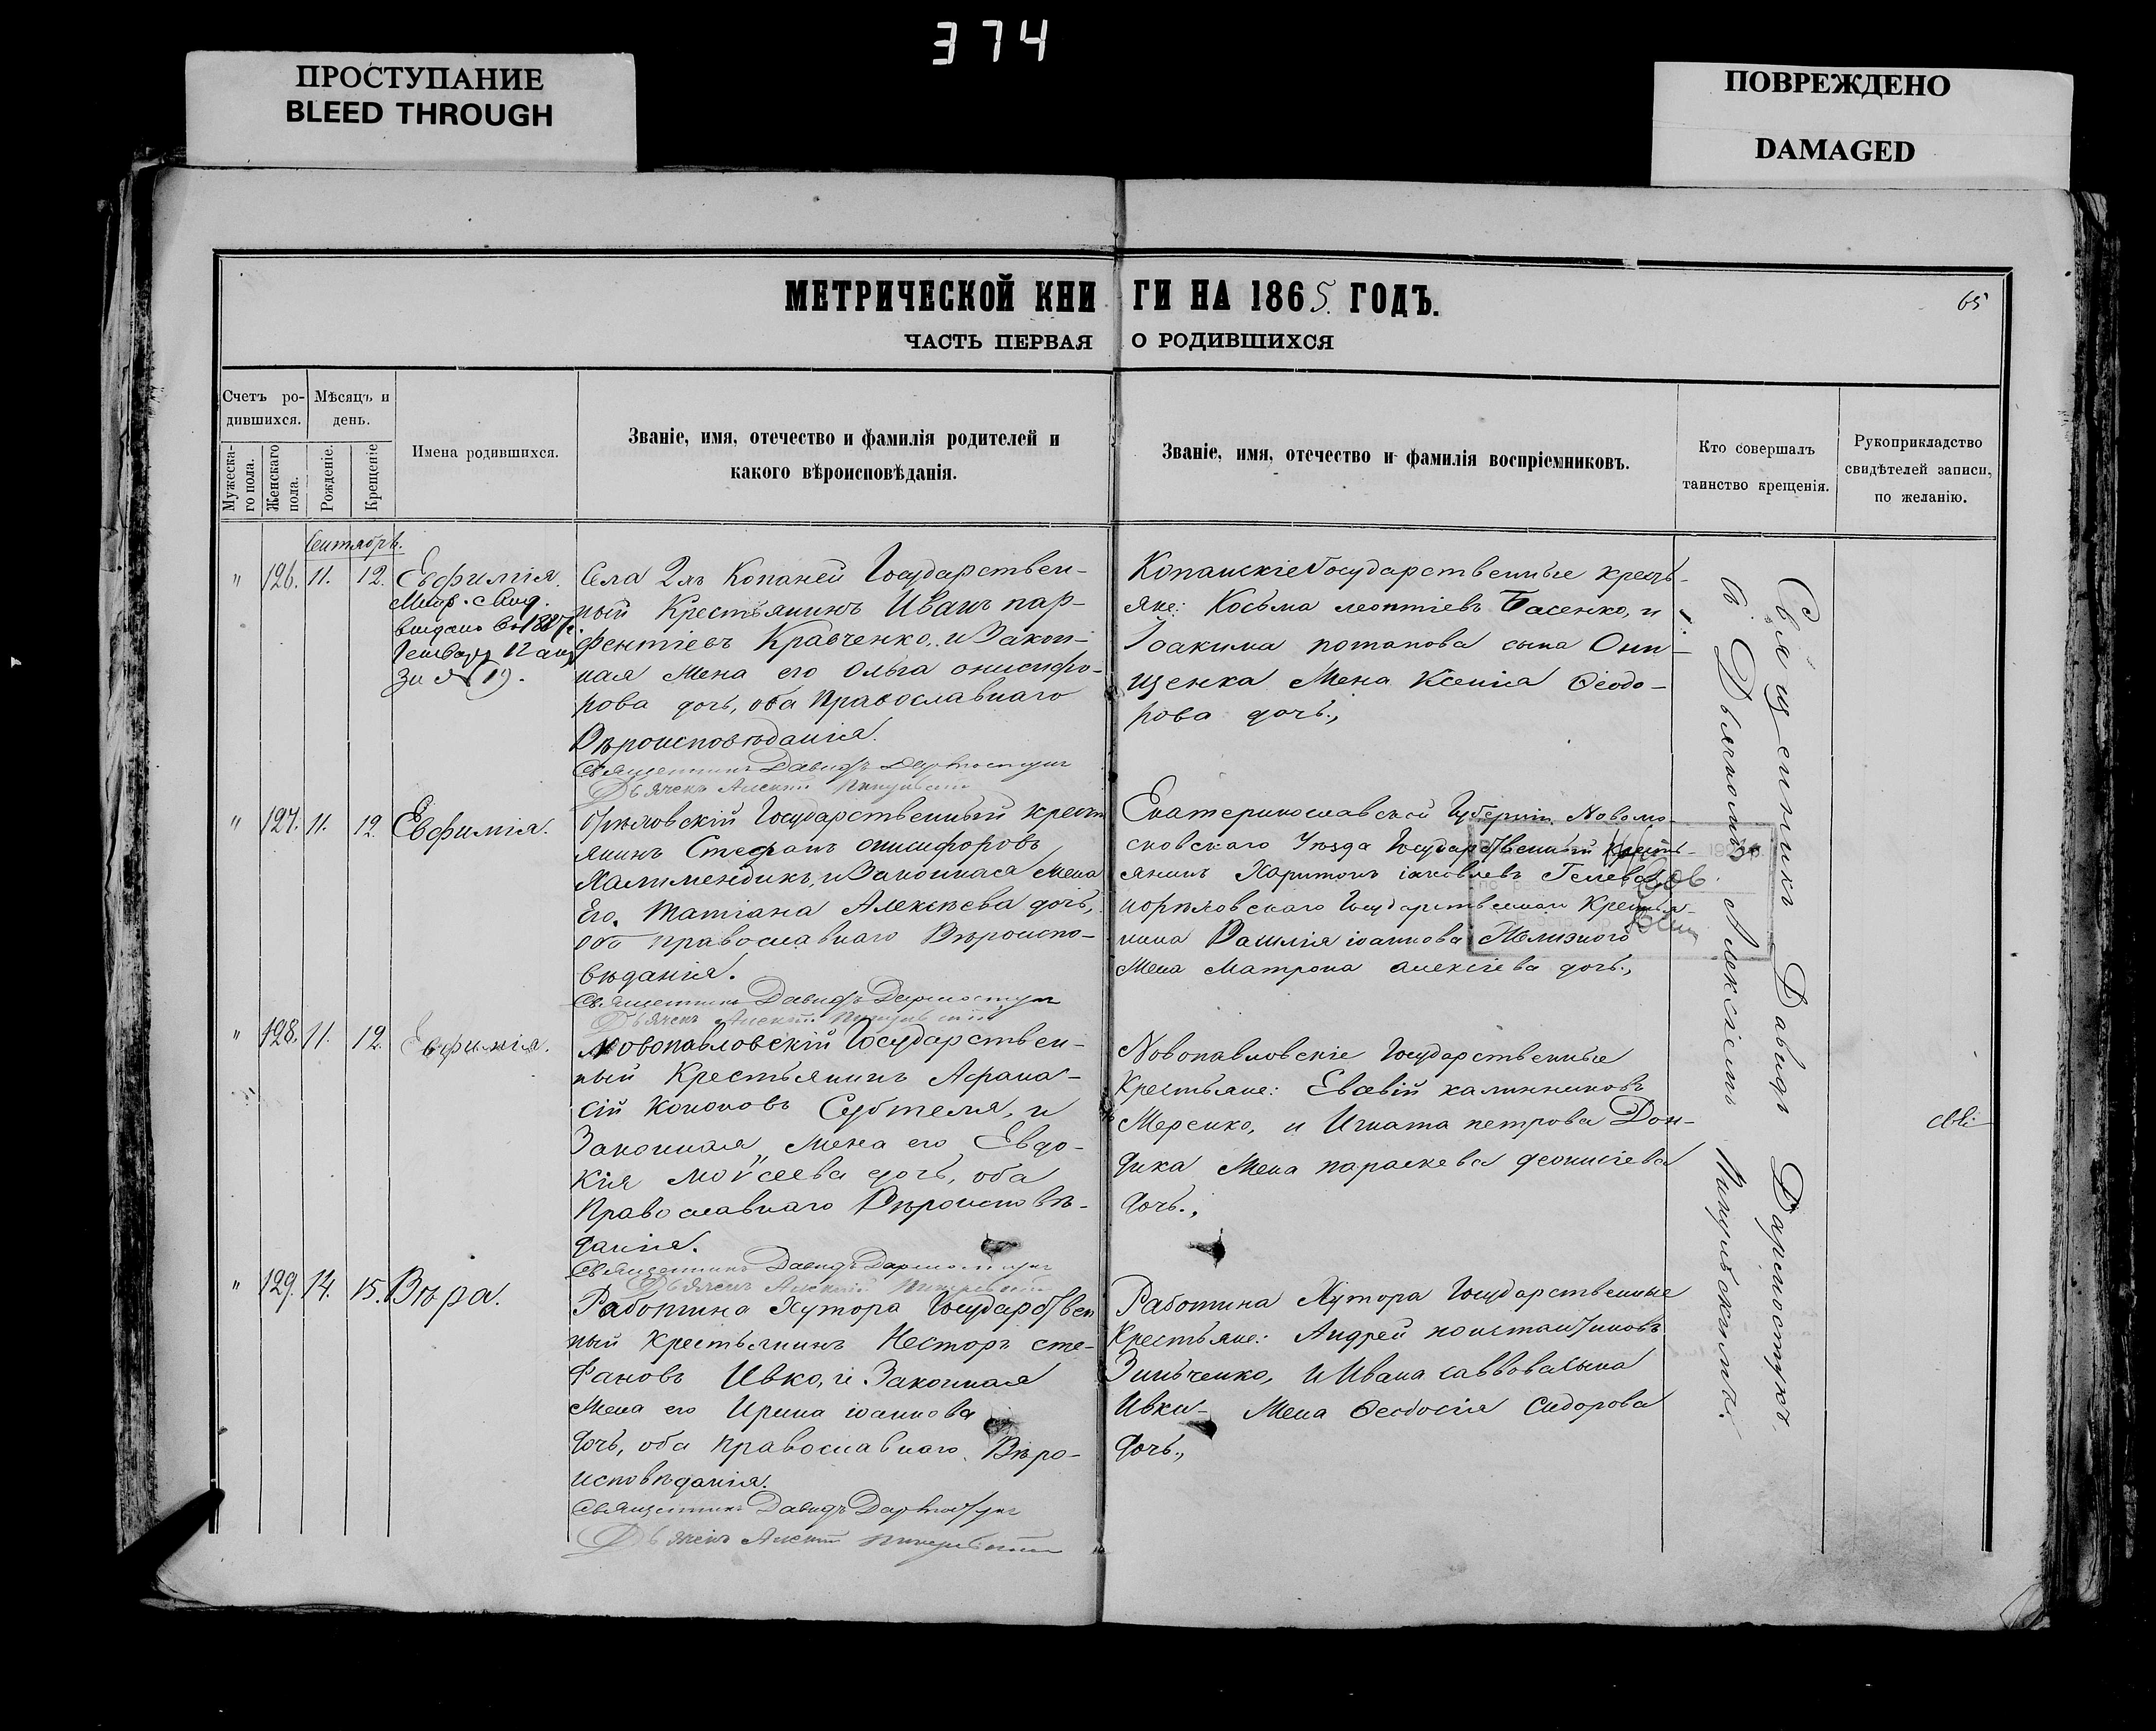 374
ПРОСТУПАНИЕ
BLEED THROUGH
ПОВРЕЖДЕНО
DAMAGED
МЕТРИЧЕСКОЙ КНИ ГИ НА 1865. ГОДЪ.
65
ЧАСТЬ ПЕРВАЯ О РОДИВШИХСЯ
Счетъ ро-
дившихся.
Мѣсяцъ и
день.
Мужеска-
го пола.
Женскаго
пола.
Рожденіе.
Крещеніе
Имена родившихся.
Званіе, имя, отечество и фамилія родителей и
какого вѣроисповѣданія.
Званіе, имя, отечество и фамилія воспріемниковъ.
Кто совершалъ
таинство крещенія.
Рукоприкладство
свидѣтелей записи,
по желанію.
Сентябрь.
" 126. 11. 12. Евфимія.
выдано въ 1887
За № 19.
Села 2хъ Копаней Государствен-
ный Крестьянинъ Иванъ пар-
фентіевъ Кравченко, и Закон-
ная Жена его Ольга онисифо-
рова дочь, оба Православнаго
Вѣроисповѣданія.
Священникъ Давидъ Дармостукъ
Дьячекъ Алексій
Копанскіе Государственные кресть-
яне: Косьма леонтіевъ Басенко, и
Іоакима потапова сына Они-
щенка Жена Ксенія Ѳеодо-
рова дочь.,
" 127. 11. 12. Евфимія.
Государственный крест
янинъ Стефанъ онисифоровъ
и Законная Жена
Его, Татіана Алексѣева дочь,
оба православнаго Вѣроиспо-
вѣданія.
Священникъ Давидъ Дармостукъ
Дьячекъ Алексій
Екатеринославской Губерніи, Новомо-
сковскаго Уѣзда Государственный Кресть-
янинъ Харитонъ іаковлевъ
Государственнаго Крестья-
нина Василія іоаннова
Жена Матрона алексіева дочь.,
" 128. 11. 12. Евфимія.
Новопавловскій Государствен-
ный Крестьянинъ Афана-
сій Кононовъ Субтеля, и
Законная Жена его Евдо-
кія Моѵсеева дочь, оба
Православнаго Вѣроисповѣ-
данія.
Священникъ Давидъ Дармостукъ
Дьячекъ Алексій
Новопавловскіе Государственные
Крестьяне: Евсевій калинниковъ
Мережко, и Игната петрова Дон-
дика Жена параскева деонисіева
дочь.,
" 129. 14. 15. Вѣра.
Работина Хутора Государствен
ный Крестьянинъ Несторъ сте-
фановъ Ивко, и Законная
Жена его Ирина іоаннова
дочь, оба православнаго Вѣро-
исповѣданія.
Священникъ Давидъ Дармостукъ
Дьячекъ Алексій
Работина Хутора Государственные
Крестьяне: Андрей константиновъ
Зинченко, и Ивана саввова сына
Ивки- Жена Ѳеодосія Сидорова
дочь.,
Священникъ Давидъ Дармостукъ
съ Дьячкомъ Алексіемъ